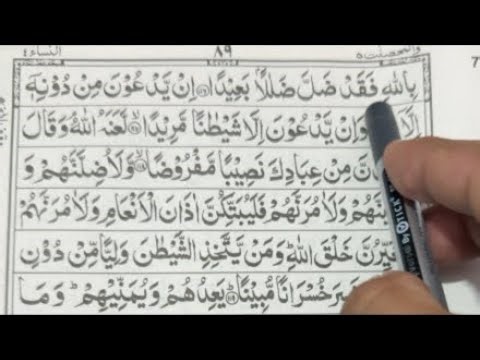 النساء ٤ ٨٩ والمحصنت ٥
بِاللّٰهِ فَقَدْ ضَلَّ ضَلٰلًاۢ بَعِيْدًا ﴿۱۱۶﴾ اِنْ يَّدْعُوْنَ مِنْ دُوْنِهٖۤ
اِلَّاۤ وَاِنْ يَّدْعُوْنَ اِلَّا شَيْطٰنًا مَّرِيْدًا ﴿۱۱۷﴾ لَّعَنَهُ اللّٰهُ ۘ وَقَالَ
مِنْ عِبَادِكَ نَصِيْبًا مَّفْرُوْضًا ﴿۱۱۸﴾ وَّلَاُضِلَّنَّهُمْ وَ
وَلَاٰمُرَنَّهُمْ فَلَيُبَتِّكُنَّ اٰذَانَ الْاَنْعَامِ وَلَاٰمُرَنَّهُمْ
خَلْقَ اللّٰهِ ؕ وَمَنْ يَّتَّخِذِ الشَّيْطٰنَ وَلِيًّا مِّنْ دُوْنِ
خُسْرَانًا مُّبِيْنًا ﴿۱۱۹﴾ يَعِدُهُمْ وَيُمَنِّيْهِمْ ؕ وَمَا